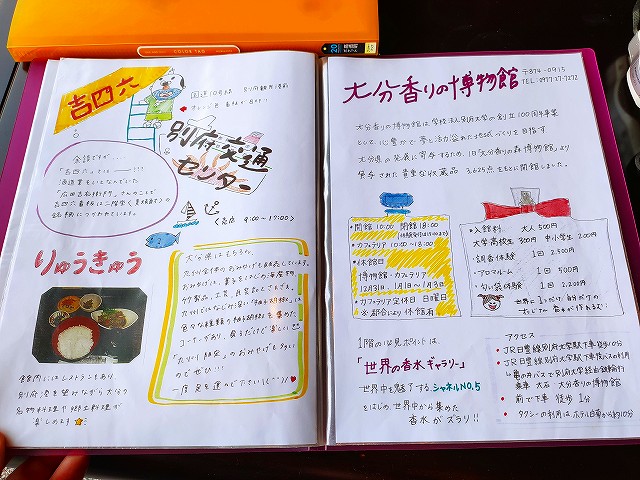 COLOR TAG
吉四六
国道10号線 別府観光港前
オレンジ色 看板が目印!!
別府交通センター
(売店 9:00〜17:00)
余談ですが…
「吉四六」って
酒造業をしてなんでいた
「広田吉右衛門」さんのことで
吉四六
銘柄につかわれています。
りゅうきゅう
大分県はもちろん、
九州全体のおみやげも販売しています。
おみやげは、菓子をはじめ海産物、
竹製品、工芸、民芸品としてあり、
大分ならではの
コーナーがあり、見るだけで楽しい
「九州限定」のおみやげも多い
のでぜひ!!
一度足を運んで下さい
館内にはレストランもあり
別府湾を望みながら大分の
名物料理や郷土料理が
楽しめます
大分香りの博物館
〒874-0915
TEL:0977-27-7272
大分香りの博物館は学校法人別府大学の創立100周年事業
として、心豊かで夢と活力溢れたまちづくりを目指す
大分県の発展に寄与するため、旧「大分香りの森博物館」より
受寄された貴重な収蔵品 3,625点をもとに開館しました。
・開館 10:00 閉館 18:00
・カフェテリア 10:00〜18:00
・休館日
博物館・カフェテリア
12月31日、1月1日〜1月3日
・カフェテリア定休日 日曜日
※都合により休館有
・入館料 大人 500円
大学高校生 300円 中小学生 200円
・調香体験 1回 2,500円
・アロマルーム 1回 500円
・匂い袋体験 1回 2,200円
世界に1つだけ!自分だけの
香水が作れるよ!!
1階の必見ポイントは、
「世界の香水ギャラリー」
世界中を魅了する、シャネルNO.5
をはじめ、世界中から集めた
香水がズラリ!!
アクセス
・JR日豊線別府大学駅下車徒歩10分
・JR日豊線別府大学駅下車後バスの利用
亀の井バスで別府大学経由鉄輪行
乗車 大石 大分香りの博物館
・前で下車 徒歩 1分
・タクシーの利用は、ホテル白菊から約10分